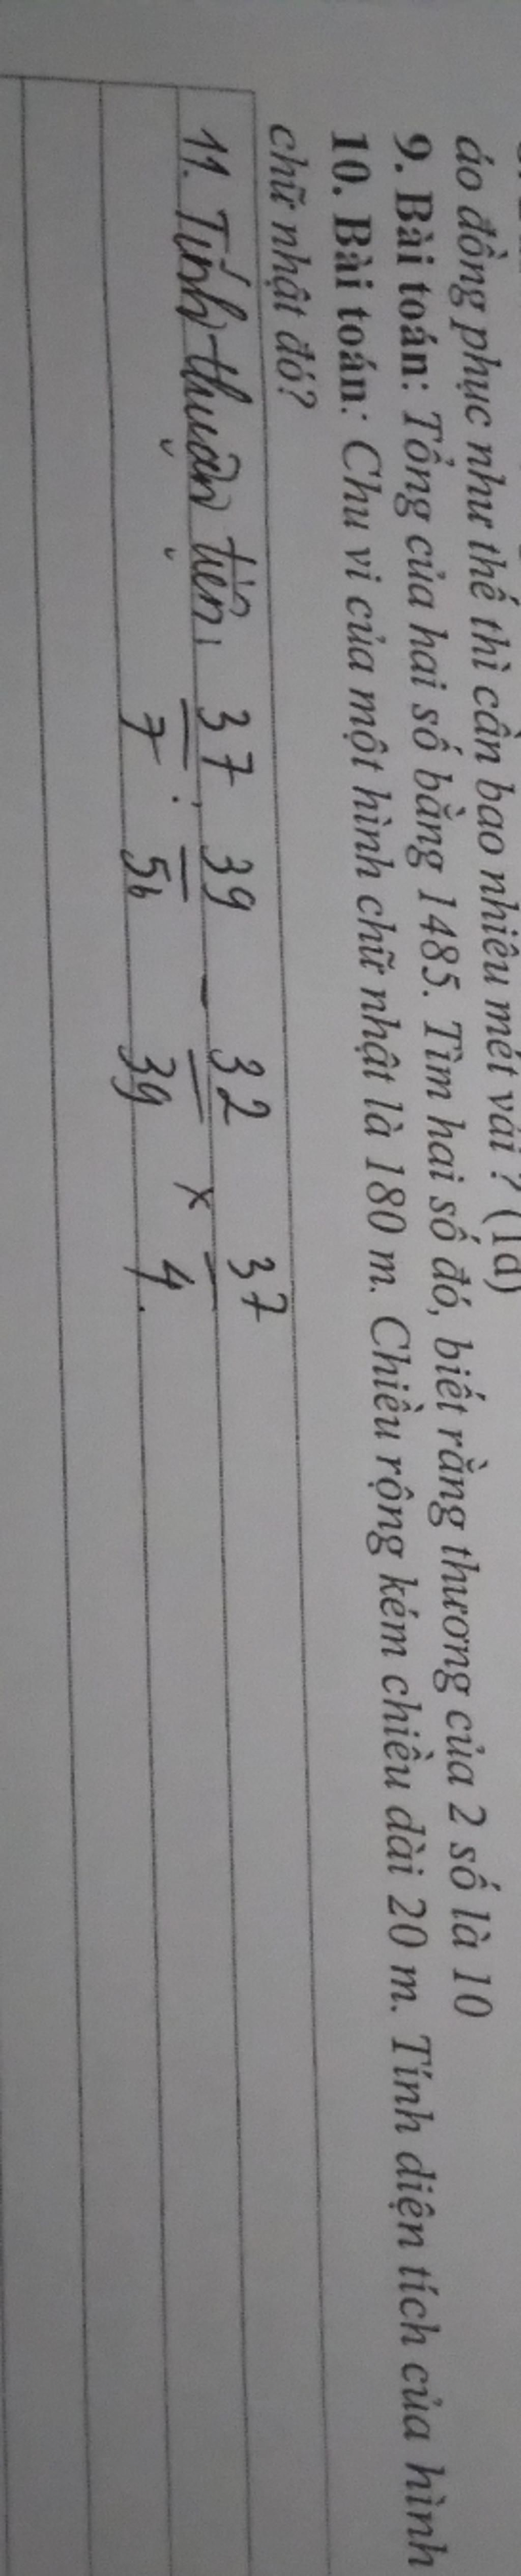 áo đồng phục như thế thì cần bao nhiêu mét vải ? (1đ)
9. Bài toán: Tổng của hai số bằng 1485. Tìm hai số đó, biết rằng thương của 2 số là 10
10. Bài toán: Chu vi của một hình chữ nhật là 180 m. Chiều rộng kém chiều dài 20 m. Tính diện tích của hình
chữ nhật đó?
11. Tính thuận tiện: 37/7 : 39/56 - 32/39 x 37/4